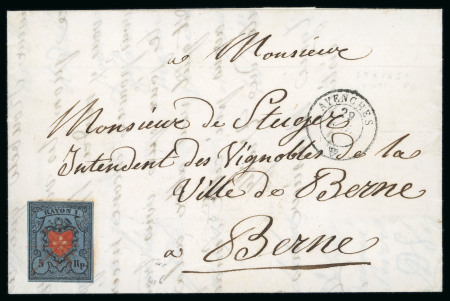 a Monsieur
AVENCHES
29
Monsieur de Stuger
Intendent des Vignobles de la
Ville de Berne
RAYON I
5 Rp.
a Berne